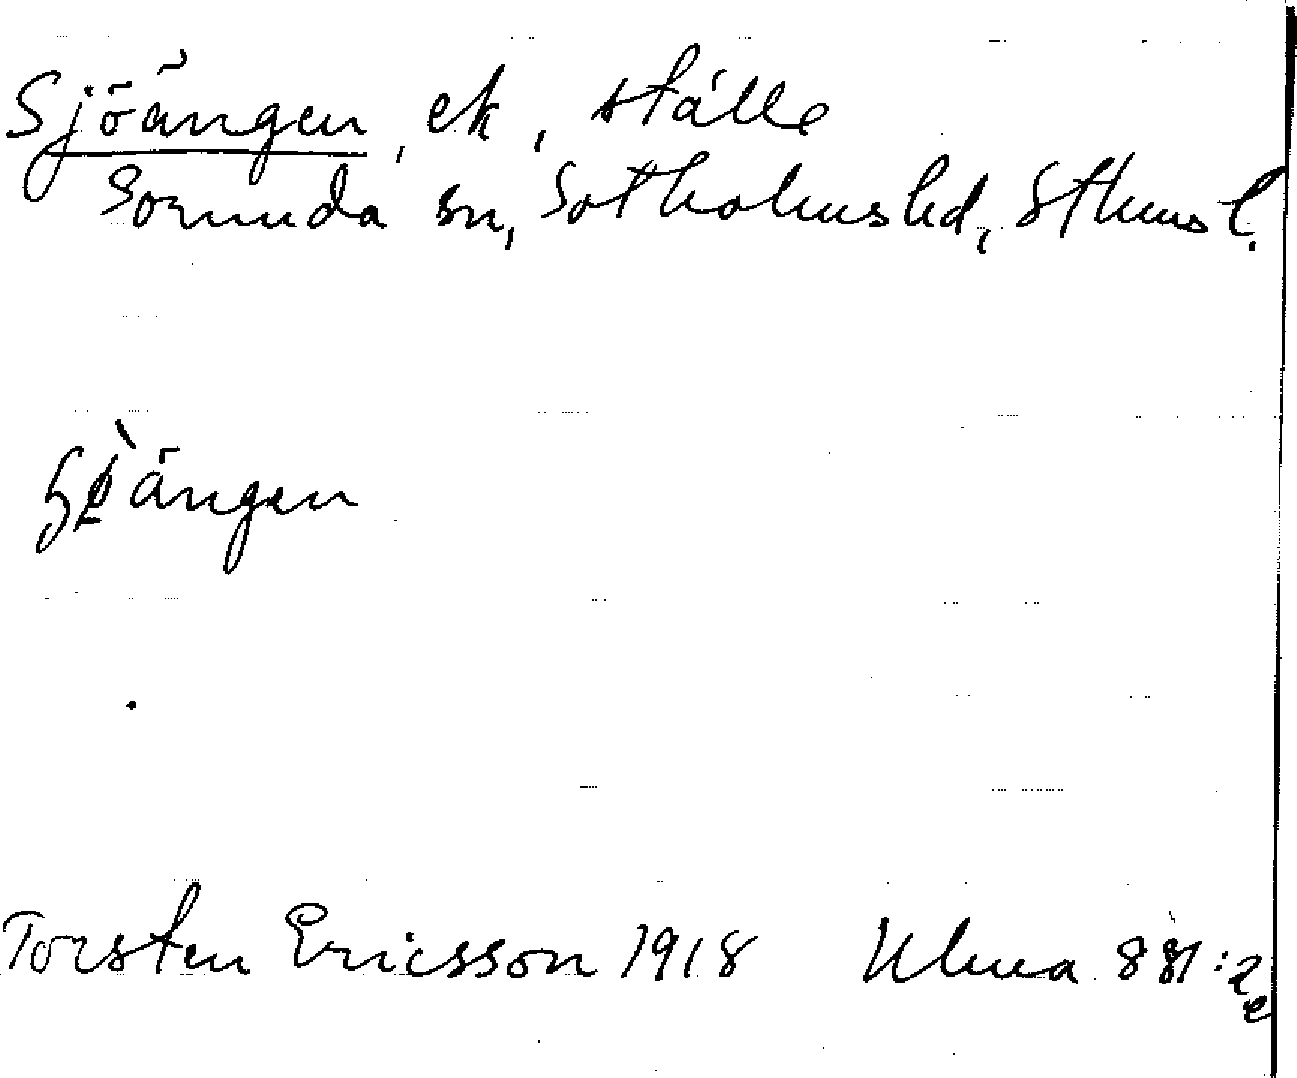 Sjöängen, ek, ställe
Sorunda sn, Sotholms hd, Sthms l.
ängen
Torsten Ericsson 1918 Ulma 881:2
e